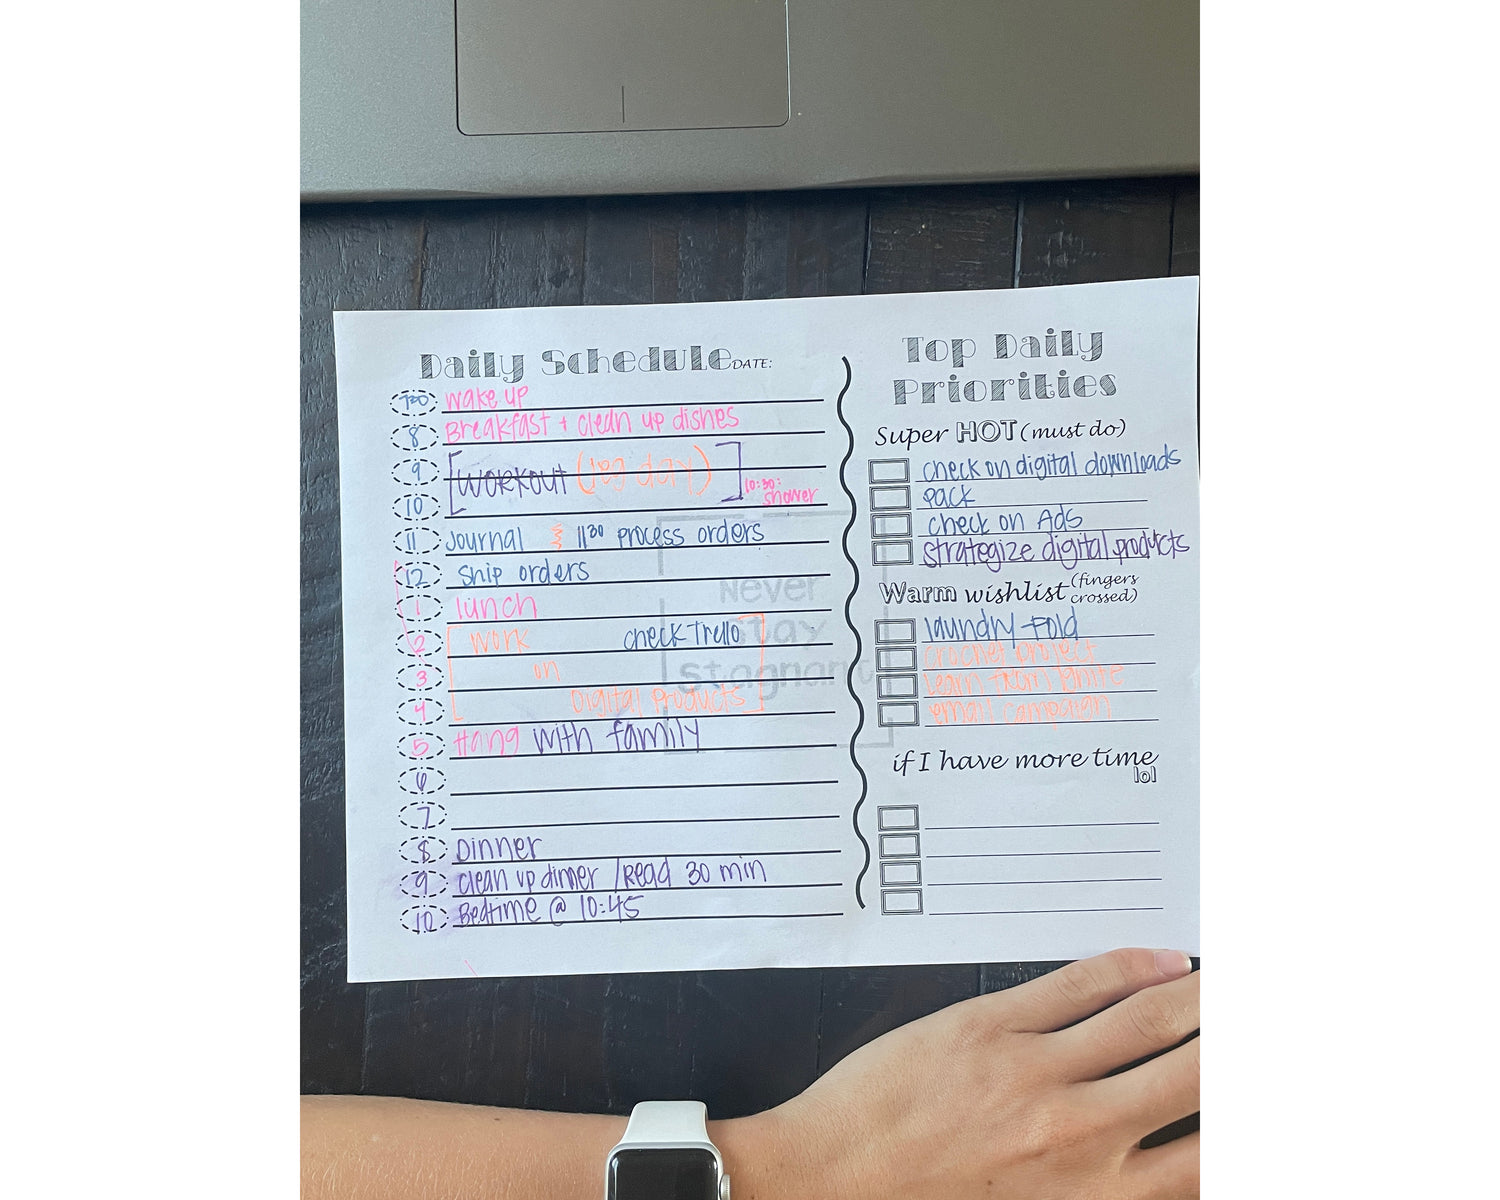 Daily Schedule DATE:
7:30 wake up
8 Breakfast + clean up dishes
9 workout (leg day)
10 10:30: shower
11 Journal 11:30 process orders
12 ship orders
1 lunch
2 work check Trello
3 on
4 Digital Products
5 Hang with family
6
7
8 Dinner
9 clean up dinner / Read 30 min
10 Bedtime @ 10:45
Never
Stay
Stagnant
Top Daily
Priorities
Super HOT (must do)
check on digital downloads
pack
check on Ads
strategize digital products
Warm wishlist (fingers crossed)
laundry-fold
crochet project
learn from ignite
email campaign
if I have more time
lol